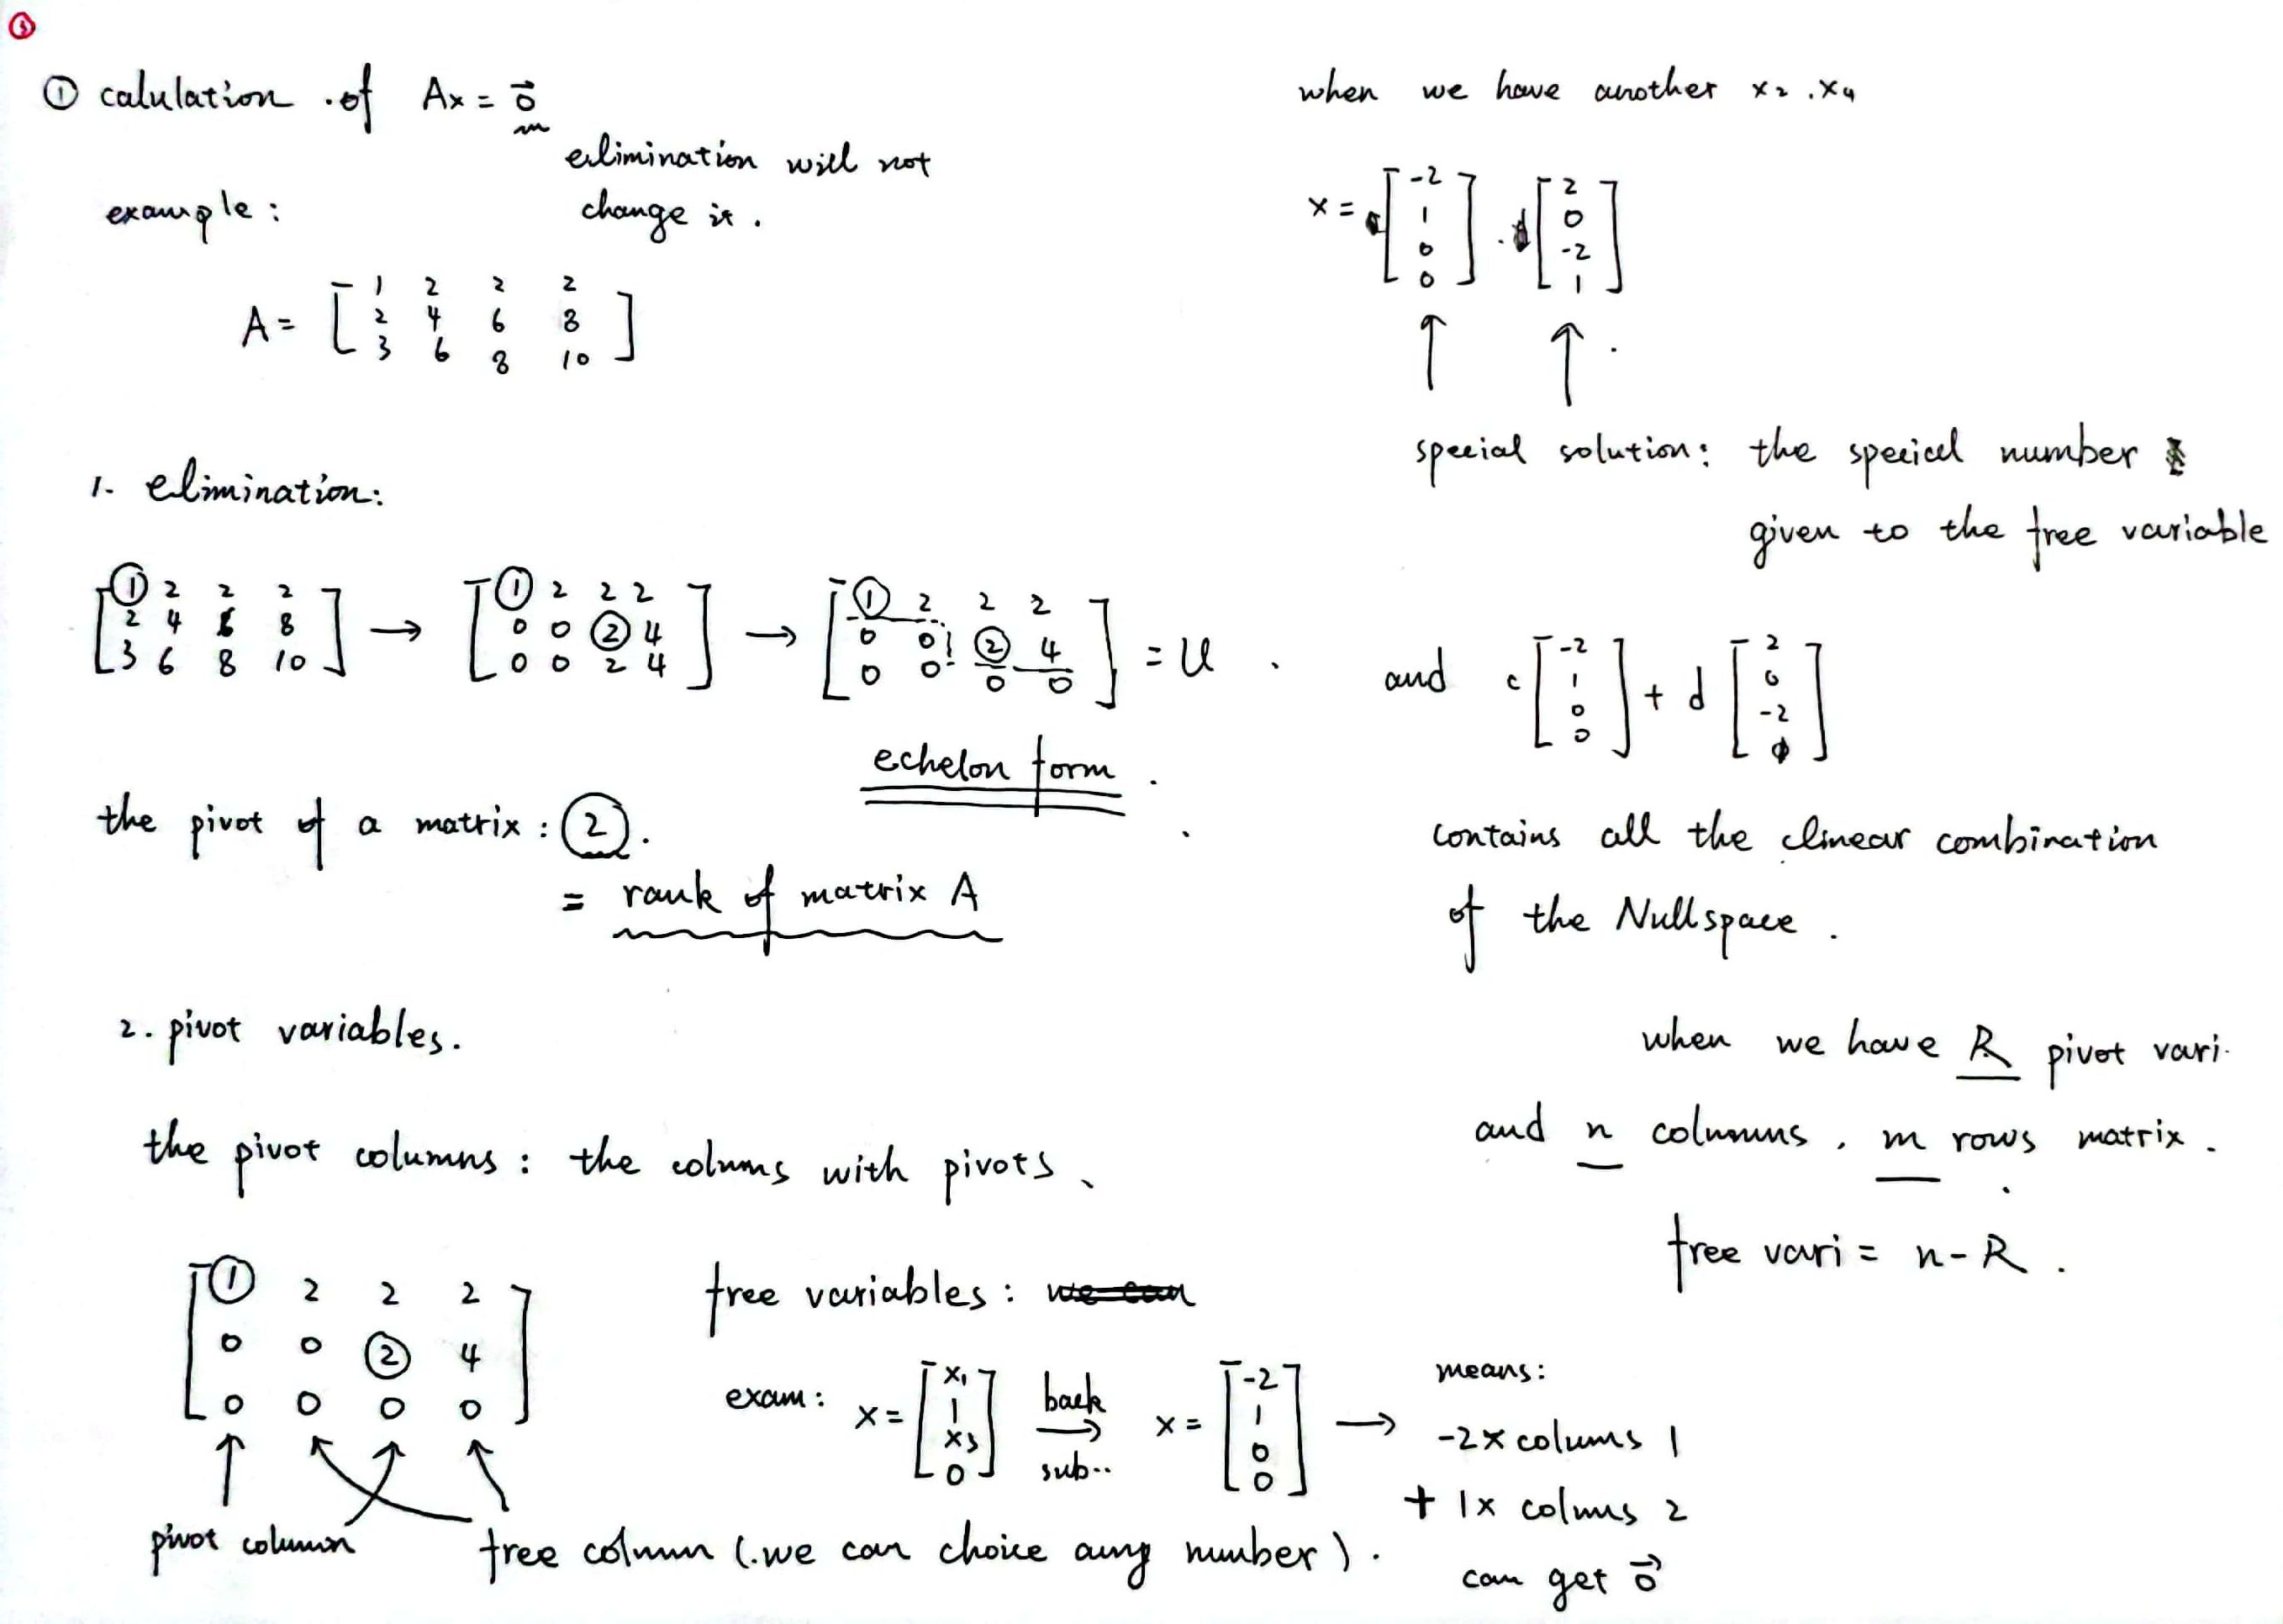 ③
① calulation of Ax = 0⃗
elimination will not
change it.
example:
A = [ 1 2 2 2
2 4 6 8
3 6 8 10 ]
1. elimination:
[ 1 2 2 2 ; 2 4 6 8 ; 3 6 8 10 ] → [ 1 2 2 2 ; 0 0 2 4 ; 0 0 2 4 ] → [ 1 2 2 2 ; 0 0 2 4 ; 0 0 0 0 ] = U
echelon form.
the pivot of a matrix : ②.
= rank of matrix A
2. pivot variables.
the pivot columns : the colums with pivots、
[ ① 2 2 2
0 0 ② 4
0 0 0 0 ]
pivot column
free column (.we can choice any number).
free variables : we can
exam: x = [ x1 1 x3 0 ] back → sub.. x = [ -2 1 0 0 ] →
means:
-2x colums 1
+ 1x colums 2
can get 0⃗
when we have another x2 . x4
x = [ -2 1 0 0 ] . [ 2 0 -2 1 ]
special solution: the special number
given to the free variable
and c [ -2 1 0 0 ] + d [ 2 0 -2 ]
contains all the linear combination
of the Nullspace.
when we have R pivot vari.
and n columns , m rows matrix.
free vari = n - R.